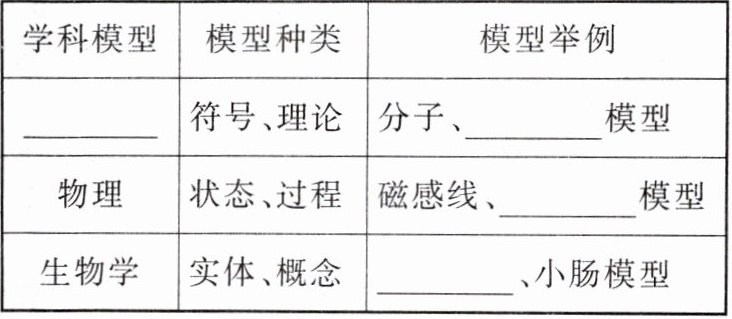 学科模型 模型种类 模型举例
________ 符号、理论 分子、________模型
物理 状态、过程 磁感线、________模型
生物学 实体、概念 ________、小肠模型